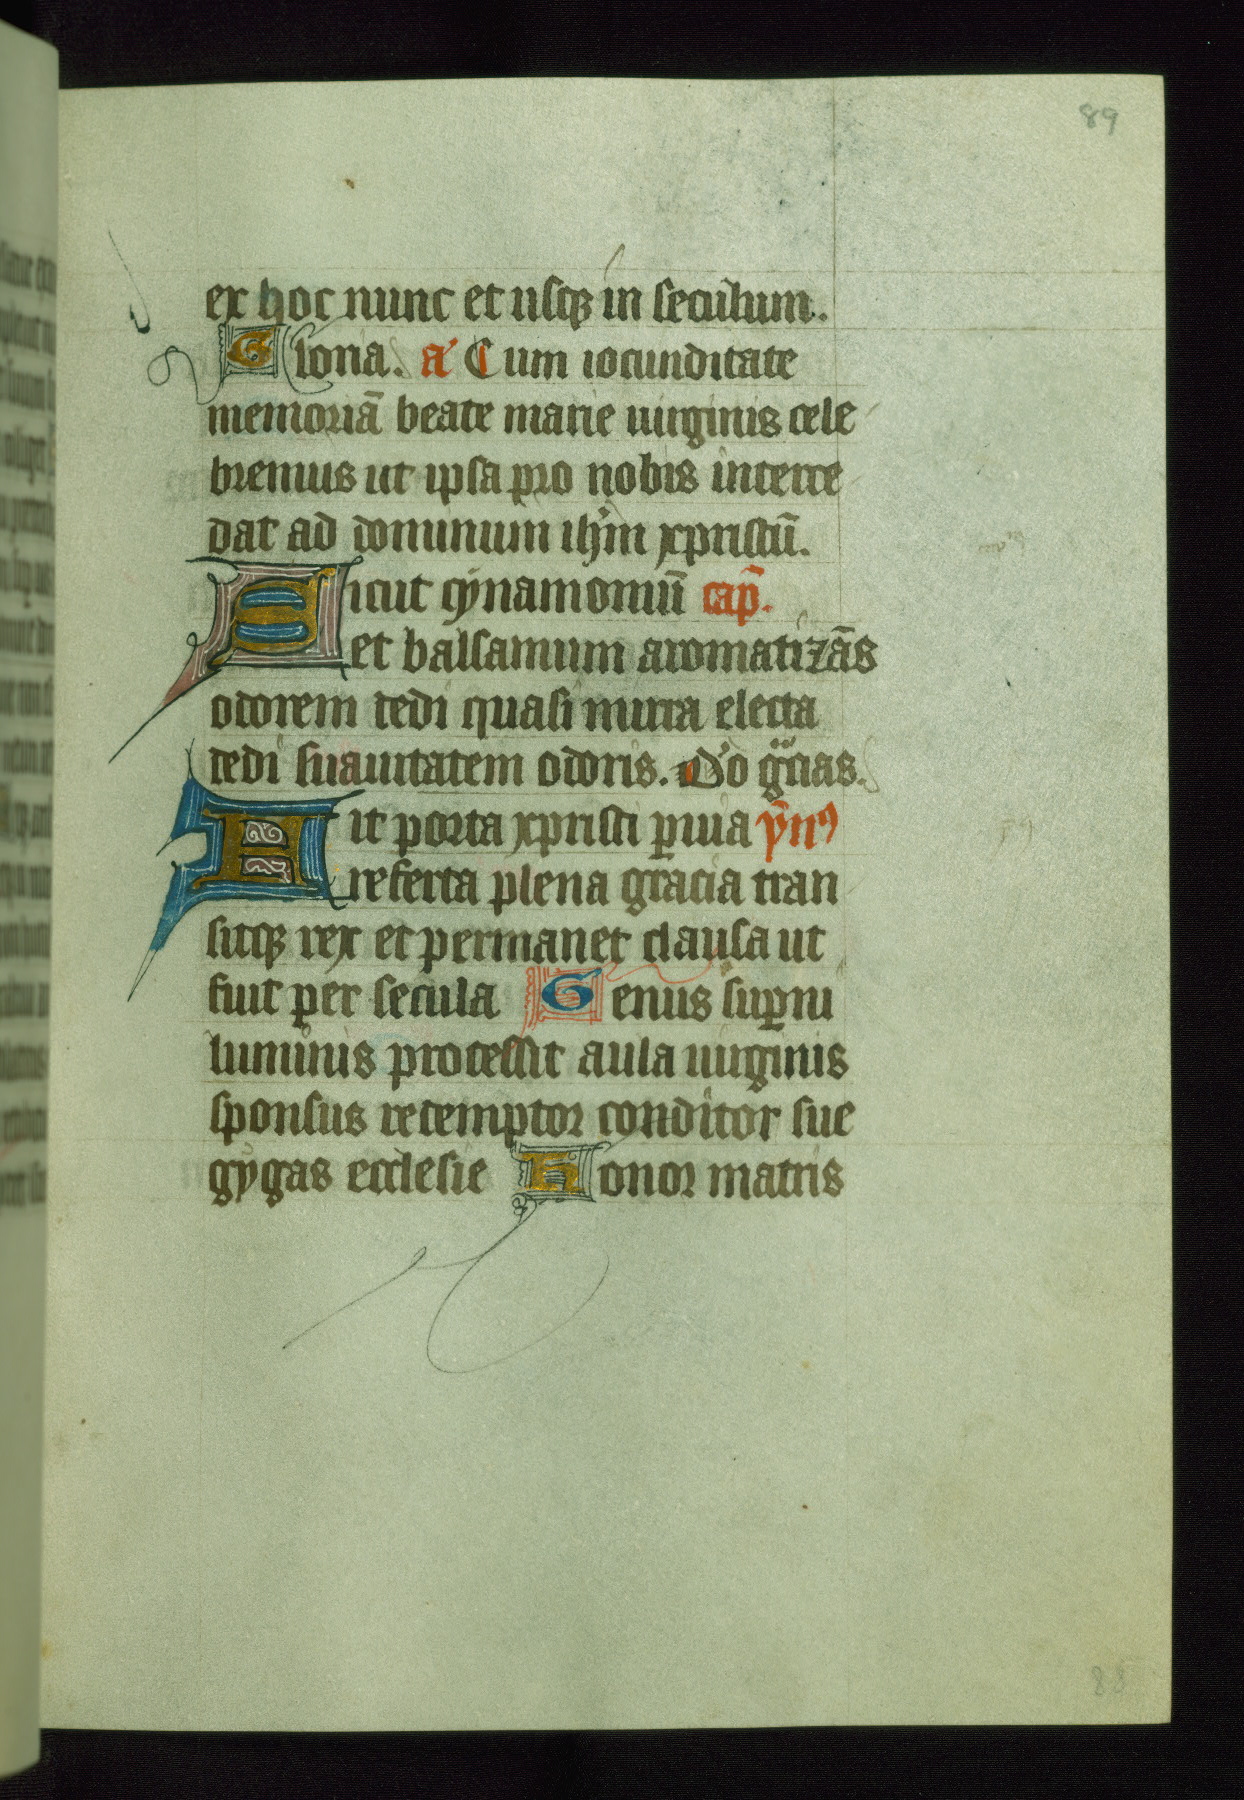 89
ex hoc nunc et usqꝫ in seculum.
Gloria. a' Cum iocunditate
memoriā beate marie uirginis cele
bremus ut ipsa pro nobis interce
dat ad dominum ihm xpristū.
Sicut cynamomū cap̄.
et balsamum aromatizās
odorem dedi quasi mirra electa
dedi suauitatem odoris. Do gcias.
Fit porta xpristi ꝑuia ymꝰ
referta plena gracia tran
sitqꝫ rex et permanet clausa ut
fuit per secula Genus suꝑni
luminis processit aula uirginis
sponsus redemptor conditor sue
gygas ecclesie Honor matris
88